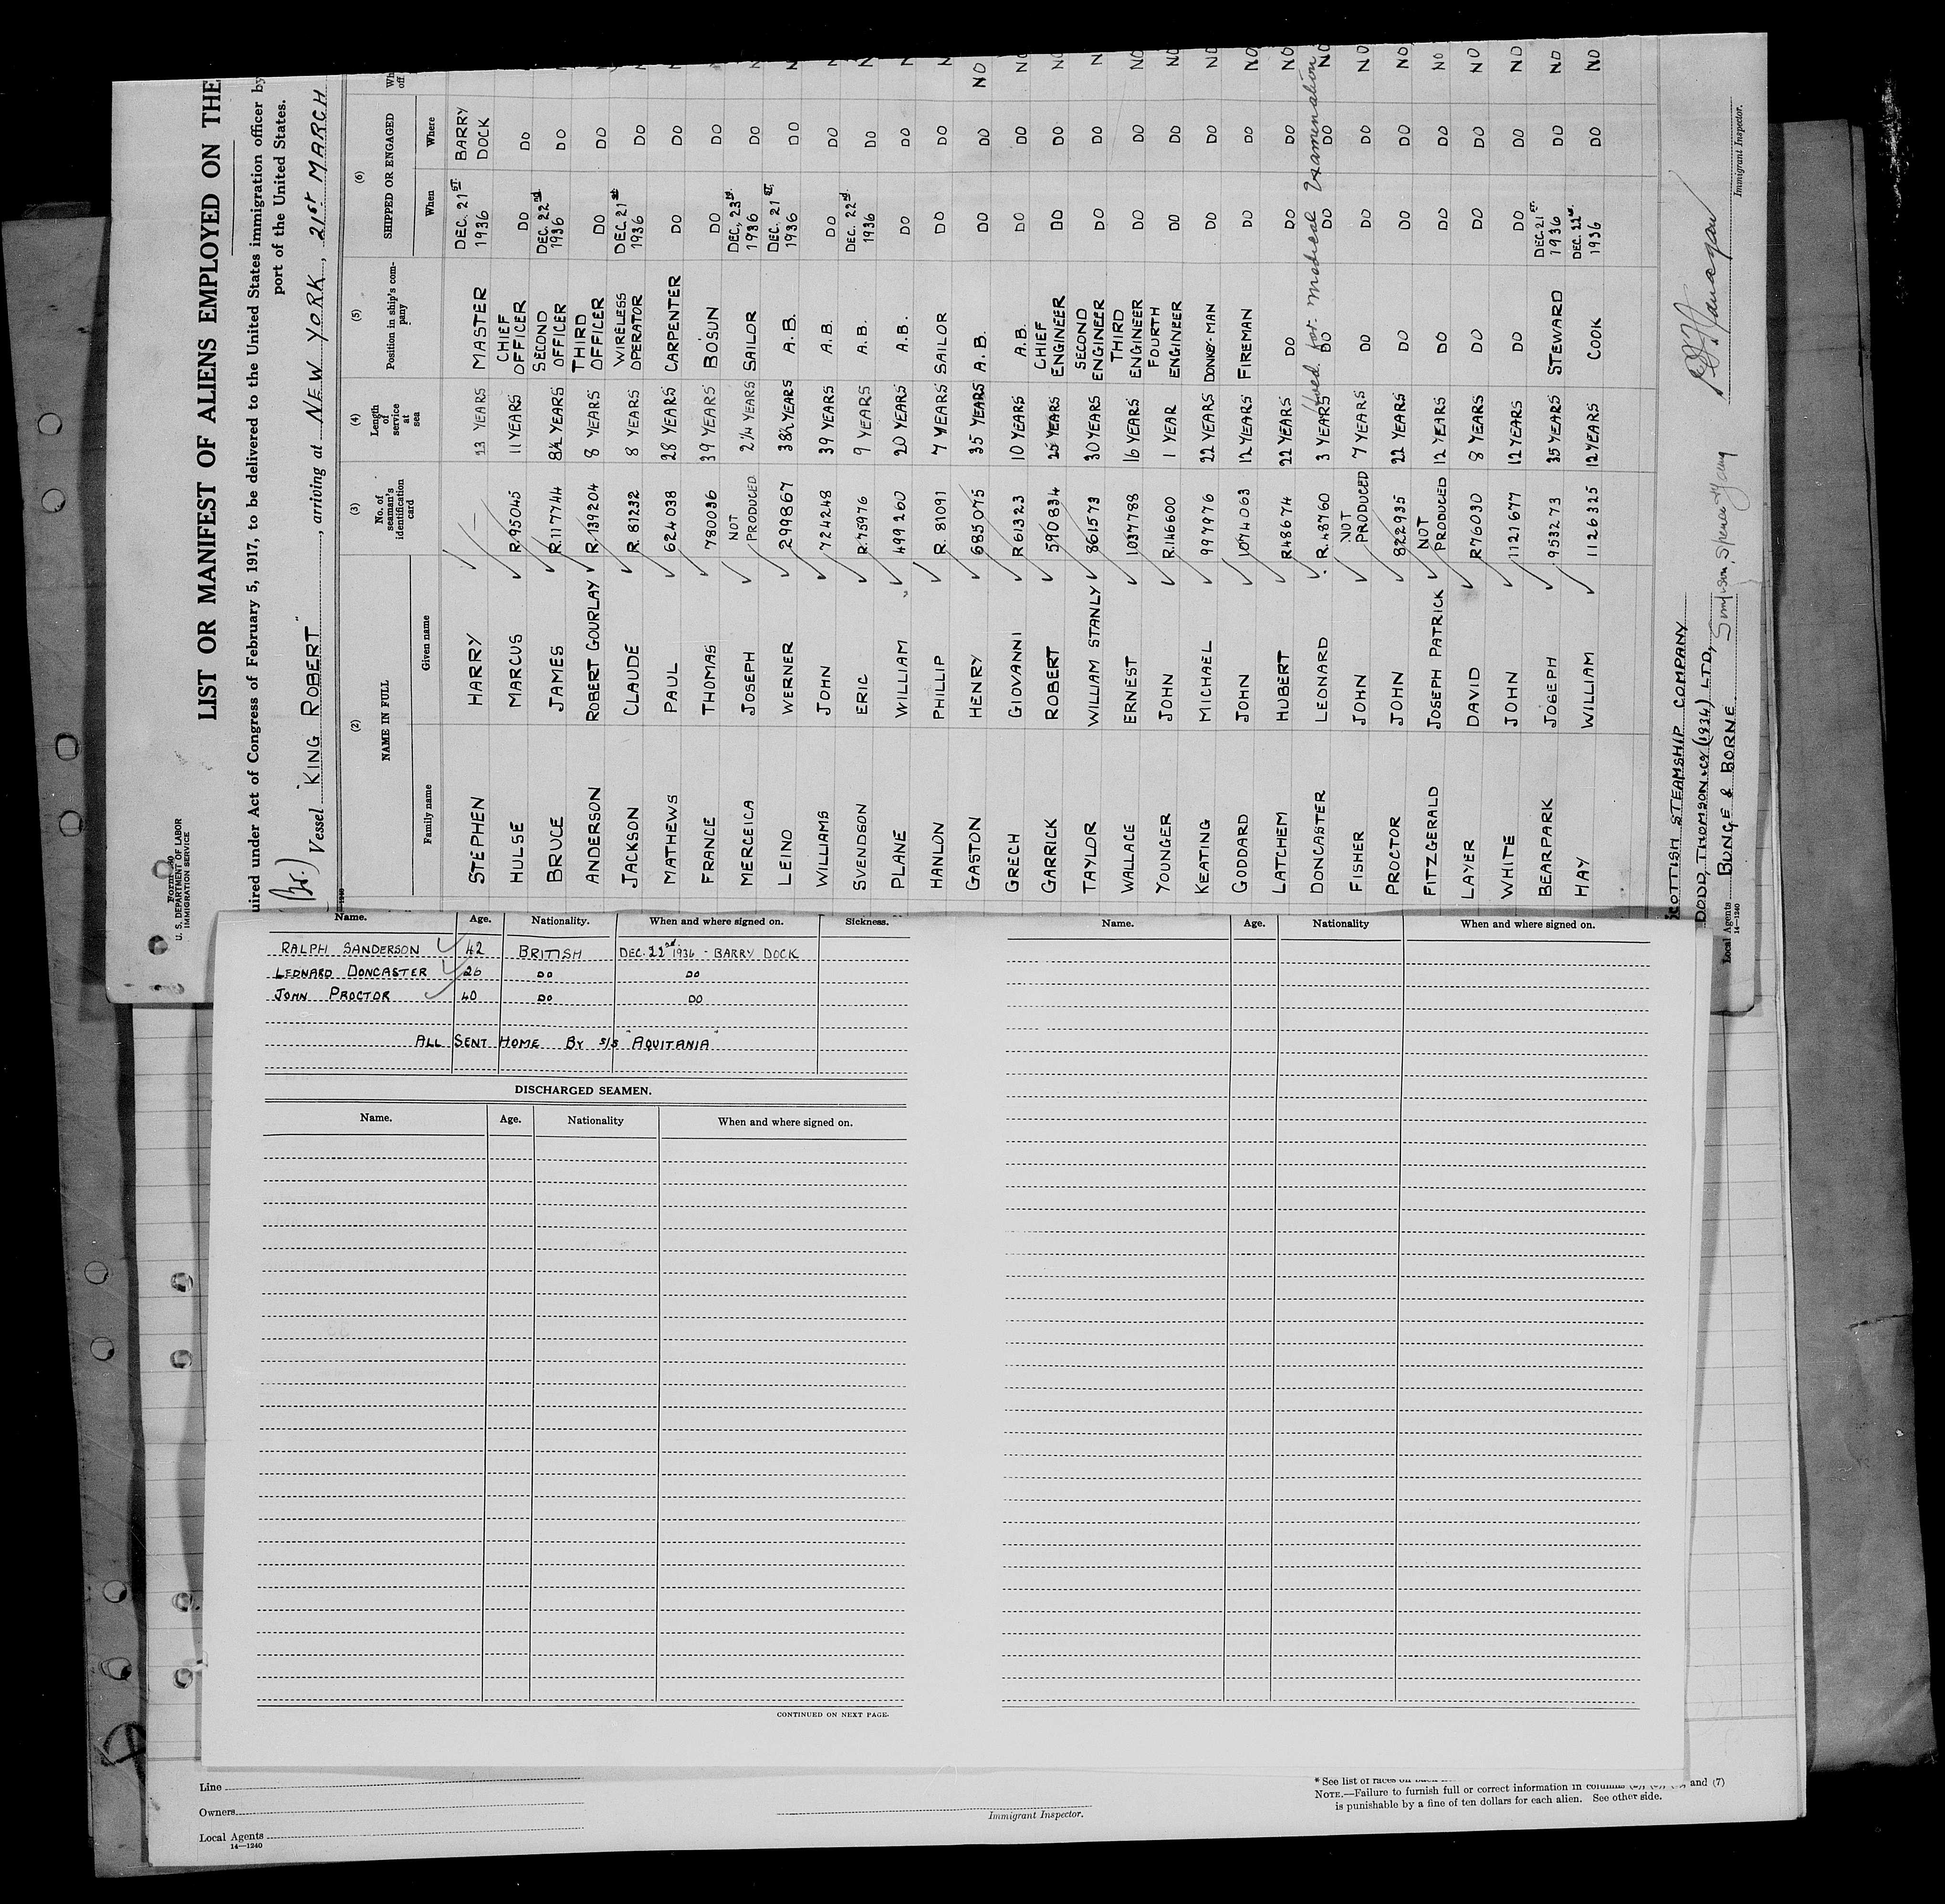 Form 680
U. S. DEPARTMENT OF LABOR
IMMIGRATION SERVICE
LIST OR MANIFEST OF ALIENS EMPLOYED ON THE
uired under Act of Congress of February 5, 1917, to be delivered to the United States immigration officer by
port of the United States.
(Br.) Vessel "KING ROBERT", arriving at NEW YORK, 21ST MARCH
(2) (3) (4) (5) (6)
NAME IN FULL No. of seaman's identification card Length of service at sea Position in ship's company SHIPPED OR ENGAGED Wh off
Family name Given name When Where
STEPHEN HARRY — 23 YEARS MASTER DEC. 21ST 1936 BARRY DOCK
HULSE MARCUS R.95045 11 YEARS CHIEF OFFICER DO DO
BRUCE JAMES R.117744 8½ YEARS SECOND OFFICER DEC. 22nd 1936 DO
ANDERSON ROBERT GOURLAY R.139204 8 YEARS THIRD OFFICER DO DO
JACKSON CLAUDE R.81232 8 YEARS WIRELESS OPERATOR DEC. 21st 1936 DO
MATHEWS PAUL 624038 28 YEARS CARPENTER DO DO
FRANCE THOMAS 780036 39 YEARS BO'SUN DO DO
MERCEICA JOSEPH NOT PRODUCED 2¼ YEARS SAILOR DEC. 23rd 1936 DO
LEINO WERNER 299867 38½ YEARS A.B. DEC. 21ST 1936 DO
WILLIAMS JOHN 724248 39 YEARS A.B. DO DO
SVENDSON ERIC R.75976 9 YEARS A.B. DEC. 22nd 1936 DO
PLANE WILLIAM 499260 20 YEARS A.B. DO DO
HANLON PHILLIP R.81091 7 YEARS SAILOR DO DO
GASTON HENRY 685075 35 YEARS A.B. DO DO NO
GRECH GIOVANNI R61323 10 YEARS A.B. DO DO NO
GARRICK ROBERT 590834 25 YEARS CHIEF ENGINEER DO DO NO
TAYLOR WILLIAM STANLY 861573 30 YEARS SECOND ENGINEER DO DO N
WALLACE ERNEST 1037788 16 YEARS THIRD ENGINEER DO DO NO
YOUNGER JOHN R.146600 1 YEAR FOURTH ENGINEER DO DO NO
KEATING MICHAEL 997976 22 YEARS DONKEY-MAN DO DO NO
GODDARD JOHN 1074063 12 YEARS FIREMAN DO DO NO
LATCHEM HUBERT R48674 22 YEARS DO DO DO NO
DONCASTER LEONARD R.48760 3 YEARS DO DO DO NO
for medical examination
FISHER JOHN NOT PRODUCED 7 YEARS DO DO DO NO
PROCTOR JOHN 822935 22 YEARS DO DO DO NO
FITZGERALD JOSEPH PATRICK NOT PRODUCED 12 YEARS DO DO DO NO
LAYER DAVID R76030 8 YEARS DO DO DO NO
WHITE JOHN 1121677 12 YEARS DO DO DO NO
BEARPARK JOSEPH 953273 35 YEARS STEWARD DEC. 21ST 1936 DO NO
HAY WILLIAM 1126325 12 YEARS COOK DEC. 22nd 1936 DO NO
SCOTTISH STEAMSHIP COMPANY
DODD, THOMSON & CO (1934) LTD,
Local Agents BUNGE & BORNE Simpson, Spence & Young
14—1240
Immigrant Inspector.
Name. Age. Nationality. When and where signed on. Sickness.
RALPH SANDERSON 42 BRITISH DEC. 22nd 1936 - BARRY DOCK
LEONARD DONCASTER 26 DO DO
JOHN PROCTOR 40 DO DO
ALL SENT HOME BY S/S "AQUITANIA"
DISCHARGED SEAMEN.
Name. Age. Nationality When and where signed on.
CONTINUED ON NEXT PAGE.
Name. Age. Nationality When and where signed on.
Line
Owners
Local Agents
14—1240
Immigrant Inspector.
* See list of races on
NOTE.—Failure to furnish full or correct information in columns and (7)
is punishable by a fine of ten dollars for each alien. See other side.